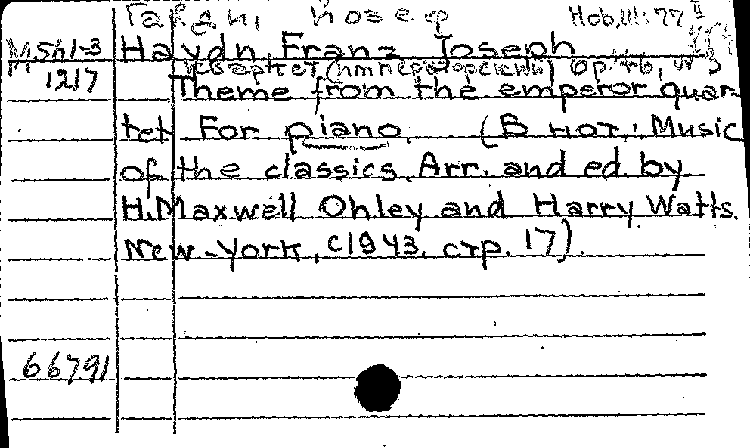 Гайдн, Йосеф
M Sh1-3 Haydn, Franz Joseph
1217 квартет (императорский) op. 76, № 3
Theme from the emperor quar-
tet For piano. (В нот.: Music
of the classics. Arr. and ed by
H. Maxwell Ohley and Harry Watts.
New-York, c1943. стр. 17).
66791